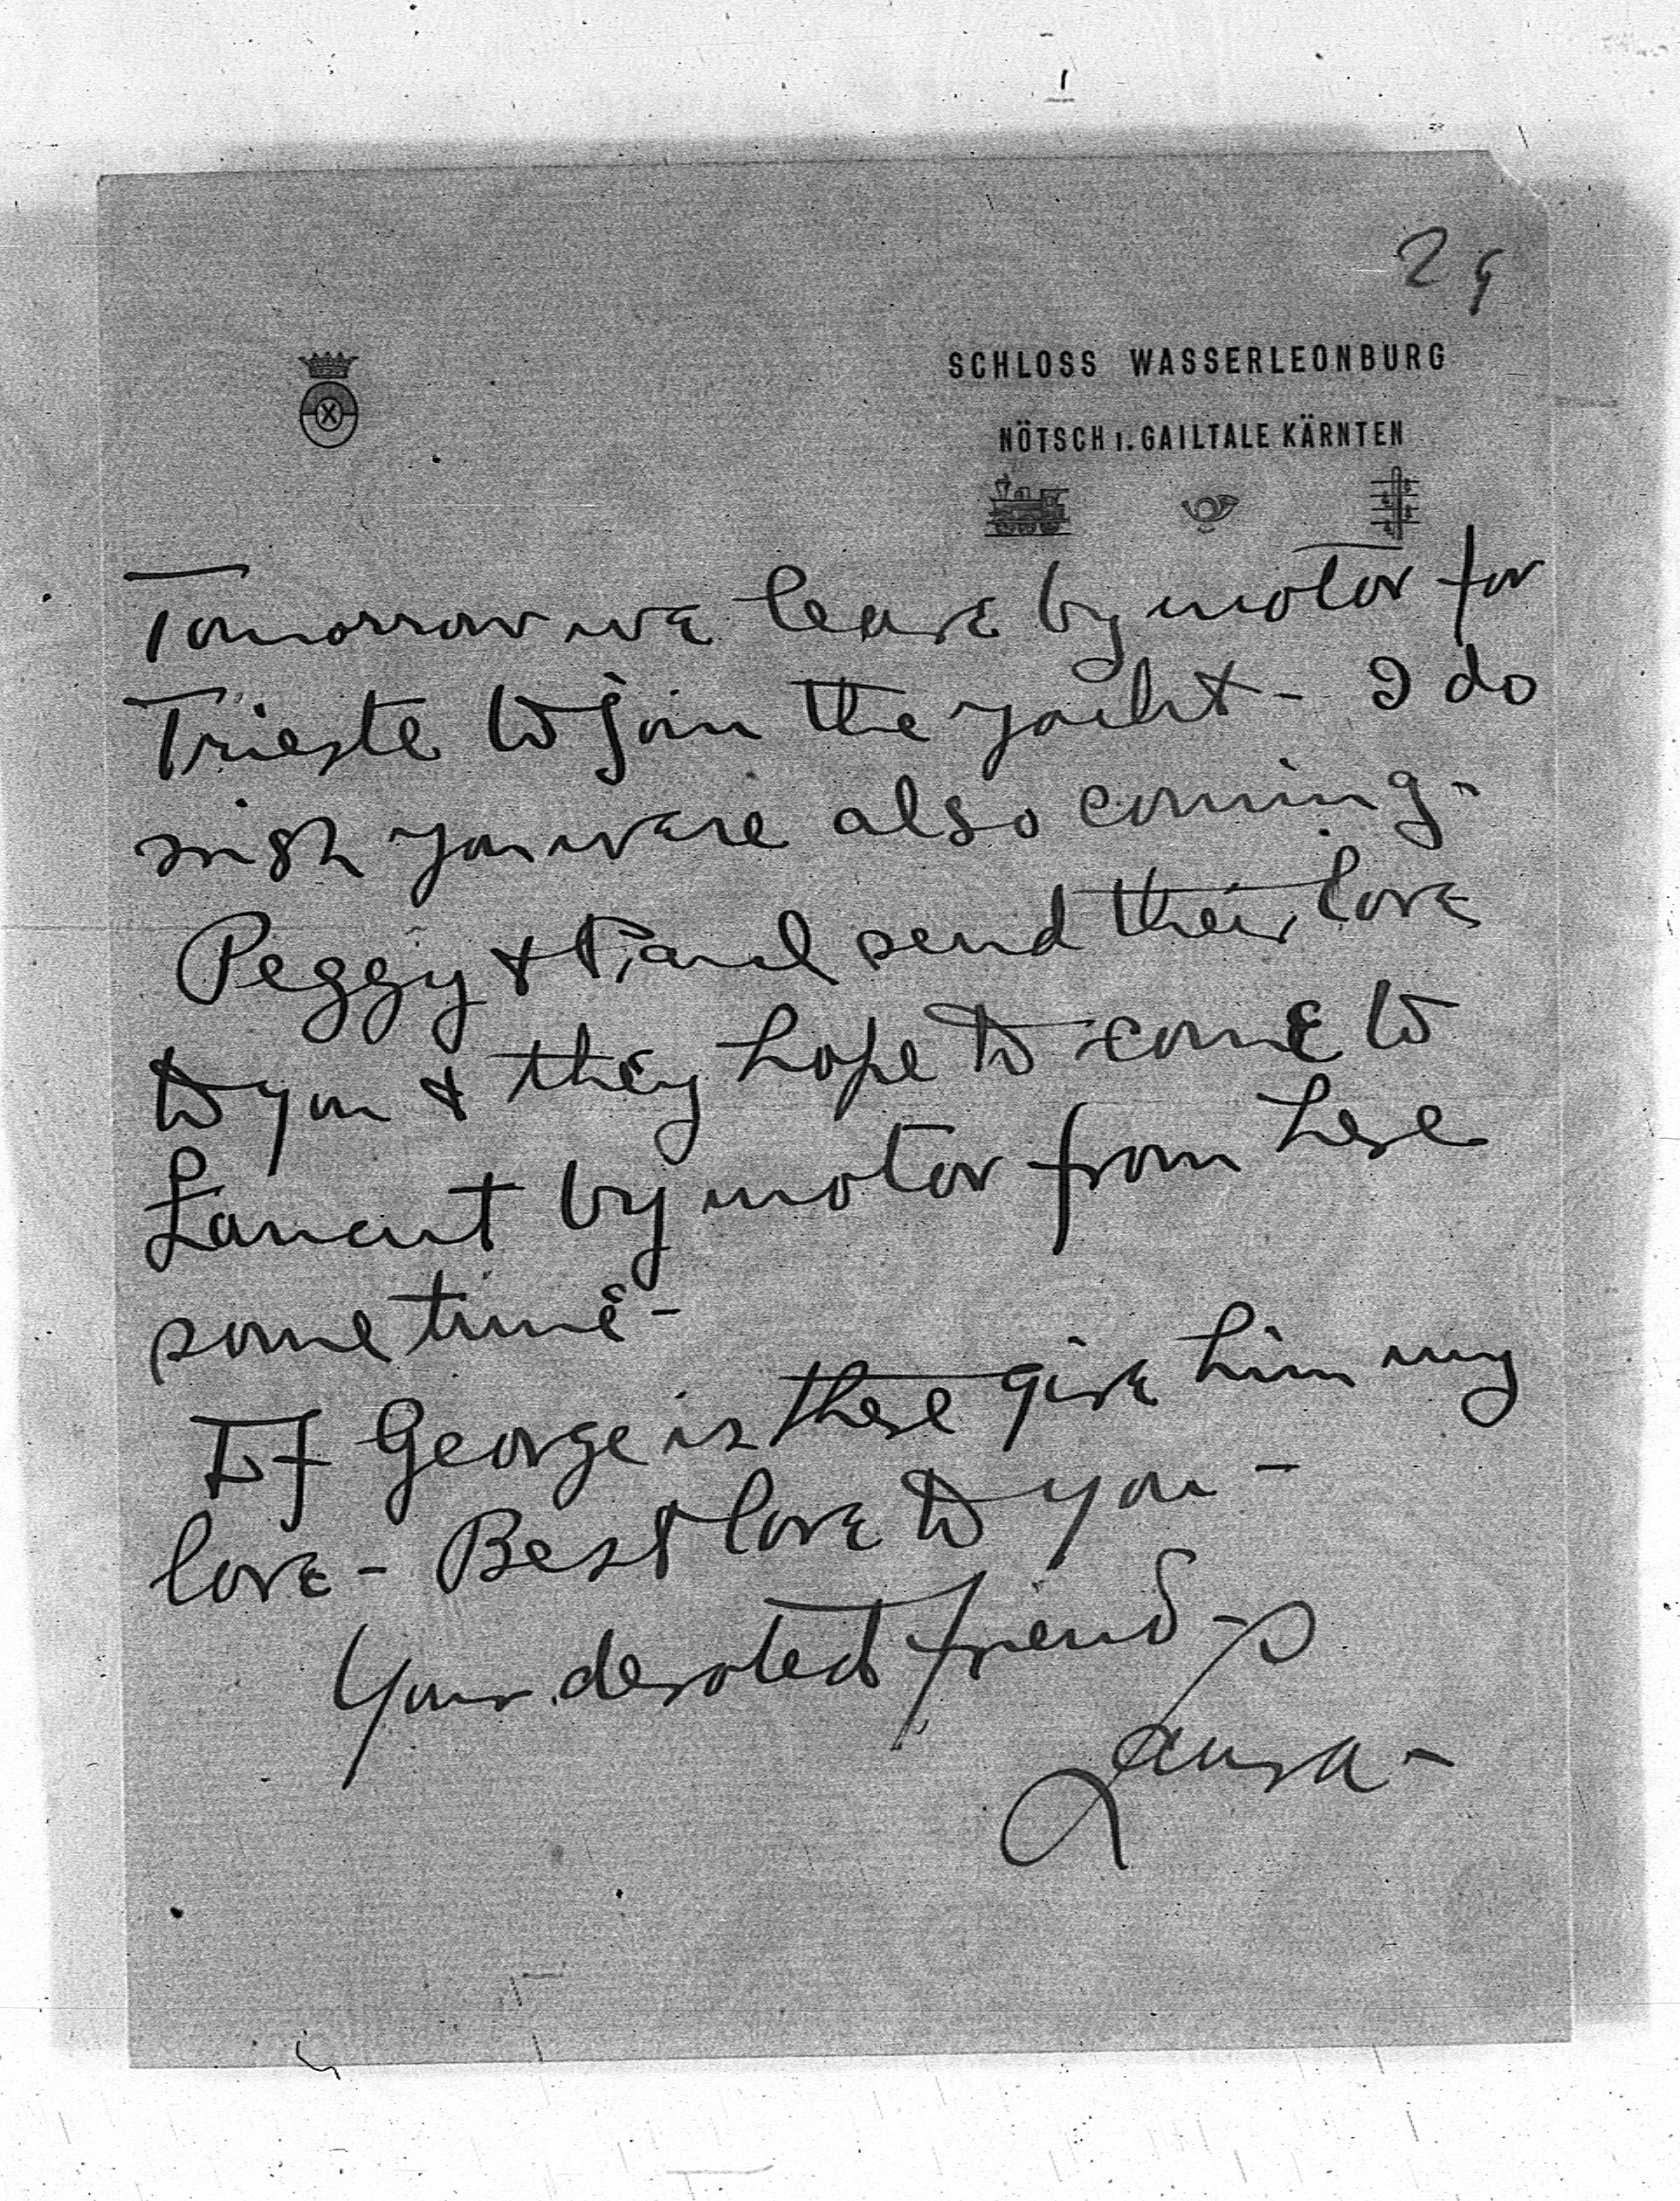 SCHLOSS WASSERLEONBURG
NÖTSCH I. GAILTALE KÄRNTEN
Tomorrow we leave by motor for
Trieste to join the yacht - I do
wish you were also coming -
Peggy & Paul send their love
to you & they hope to come to
Lancut by motor from here
some time -
If George is there give him my
love - Best love to you -
Your devoted friend -
Laura -